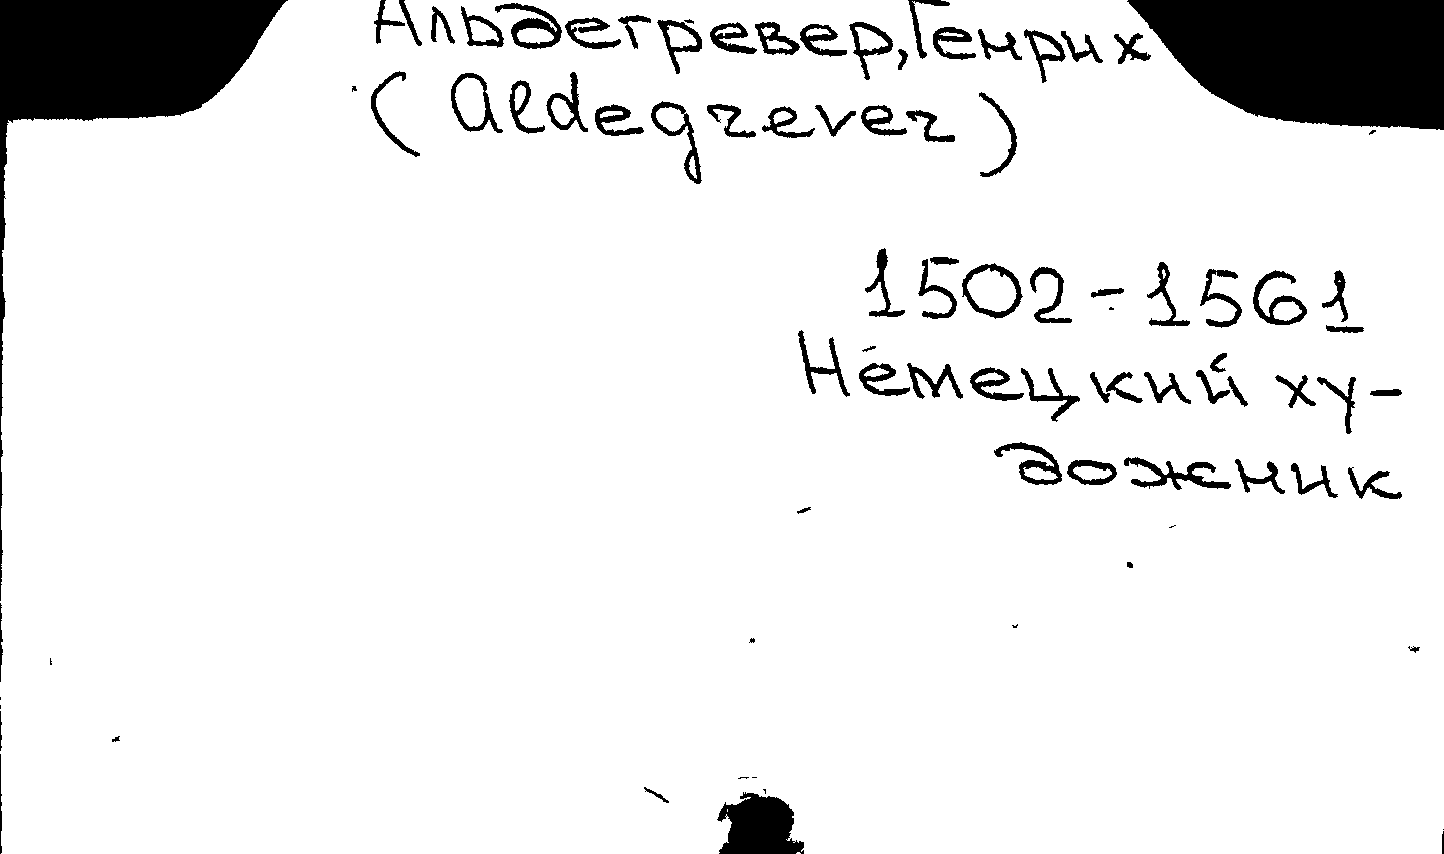 Альдегревер, Генрих
(Aldegrever)
1502-1561
Немецкий ху-
дожник